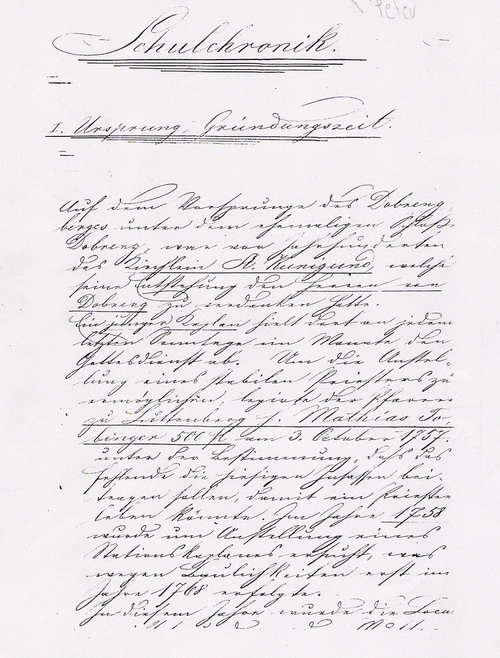 Peter
Schulchronik.
I. Ursprung, Gründungszeit.
Auf dem Vorsprunge des Dobreng
berges unter dem ehemaligen Schloß
Dobreng, war vor Jahrhunderten
das Kirchlein St. Kunigund, welche
seine Entstehung den Herren von
Dobreng zu verdanken hatte.
Ein junger Kaplan hielt dort an jedem
letzten Sonntage im Monate den
Gottesdienst ab. Um die Anstel-
lung eines stabilen Priesters zu
ermöglichen, legirte der Pfarrer
zu Luttenberg H. Mathias
500 fl am 3. October 1757.
unter der Bestimmung, daß das
Fehlende die hiesigen Insassen bei-
tragen sollen, damit ein Priester
leben könnte. Im Jahre 1758
wurde um Anstellung eines
Stationskaplanes ersucht, was
wegen Baulichkeiten erst im
Jahre 1768 erfolgte.
In diesem Jahre wurde die Loca